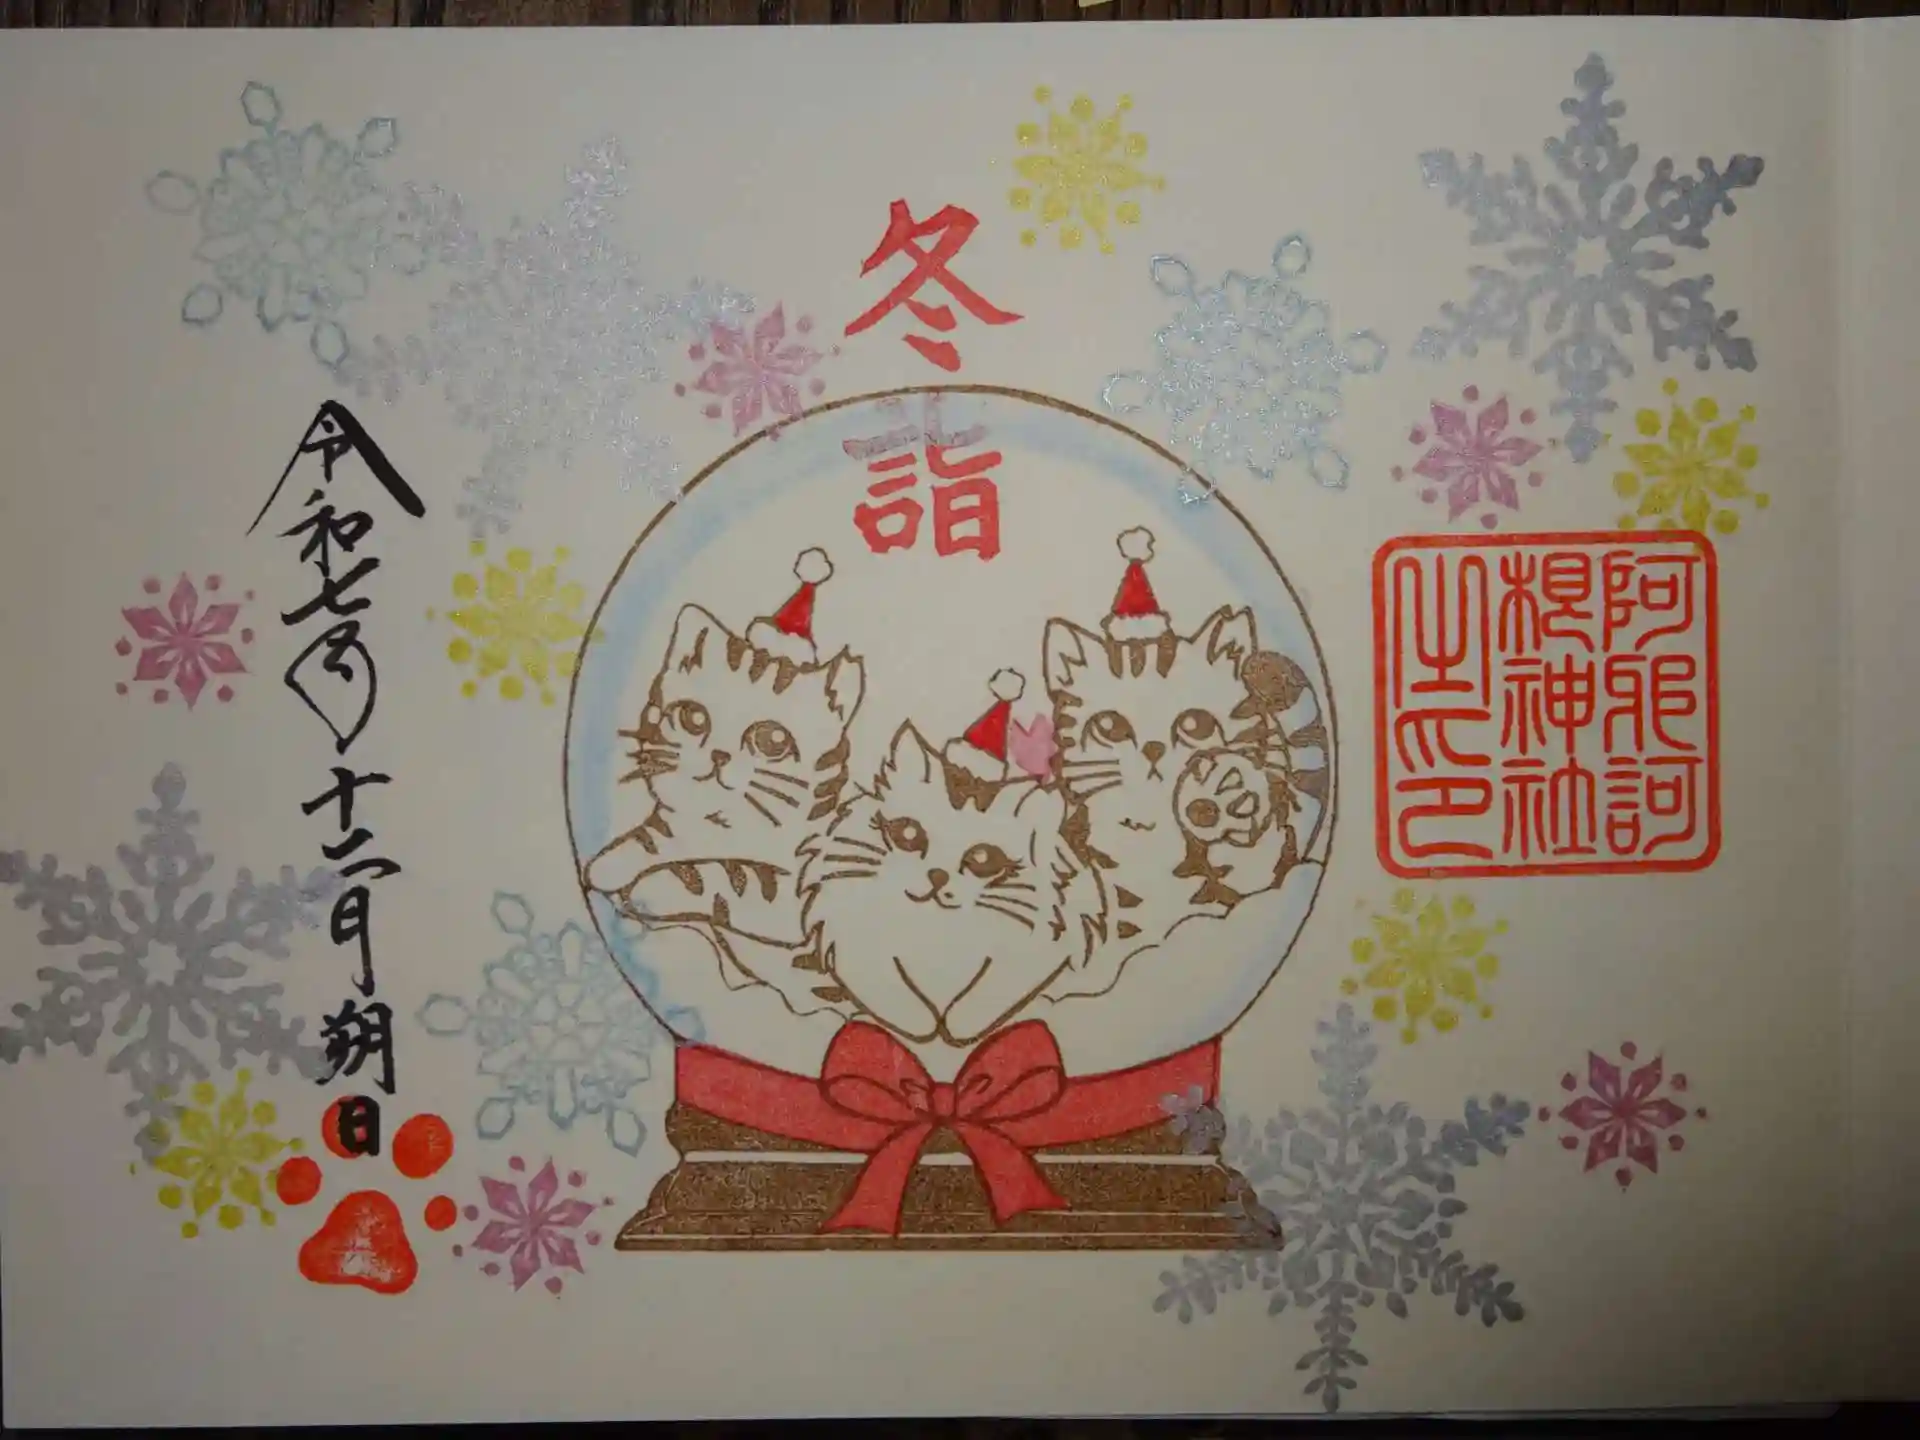 冬詣
阿邪訶
根神社
之印
令和七年十二月朔日